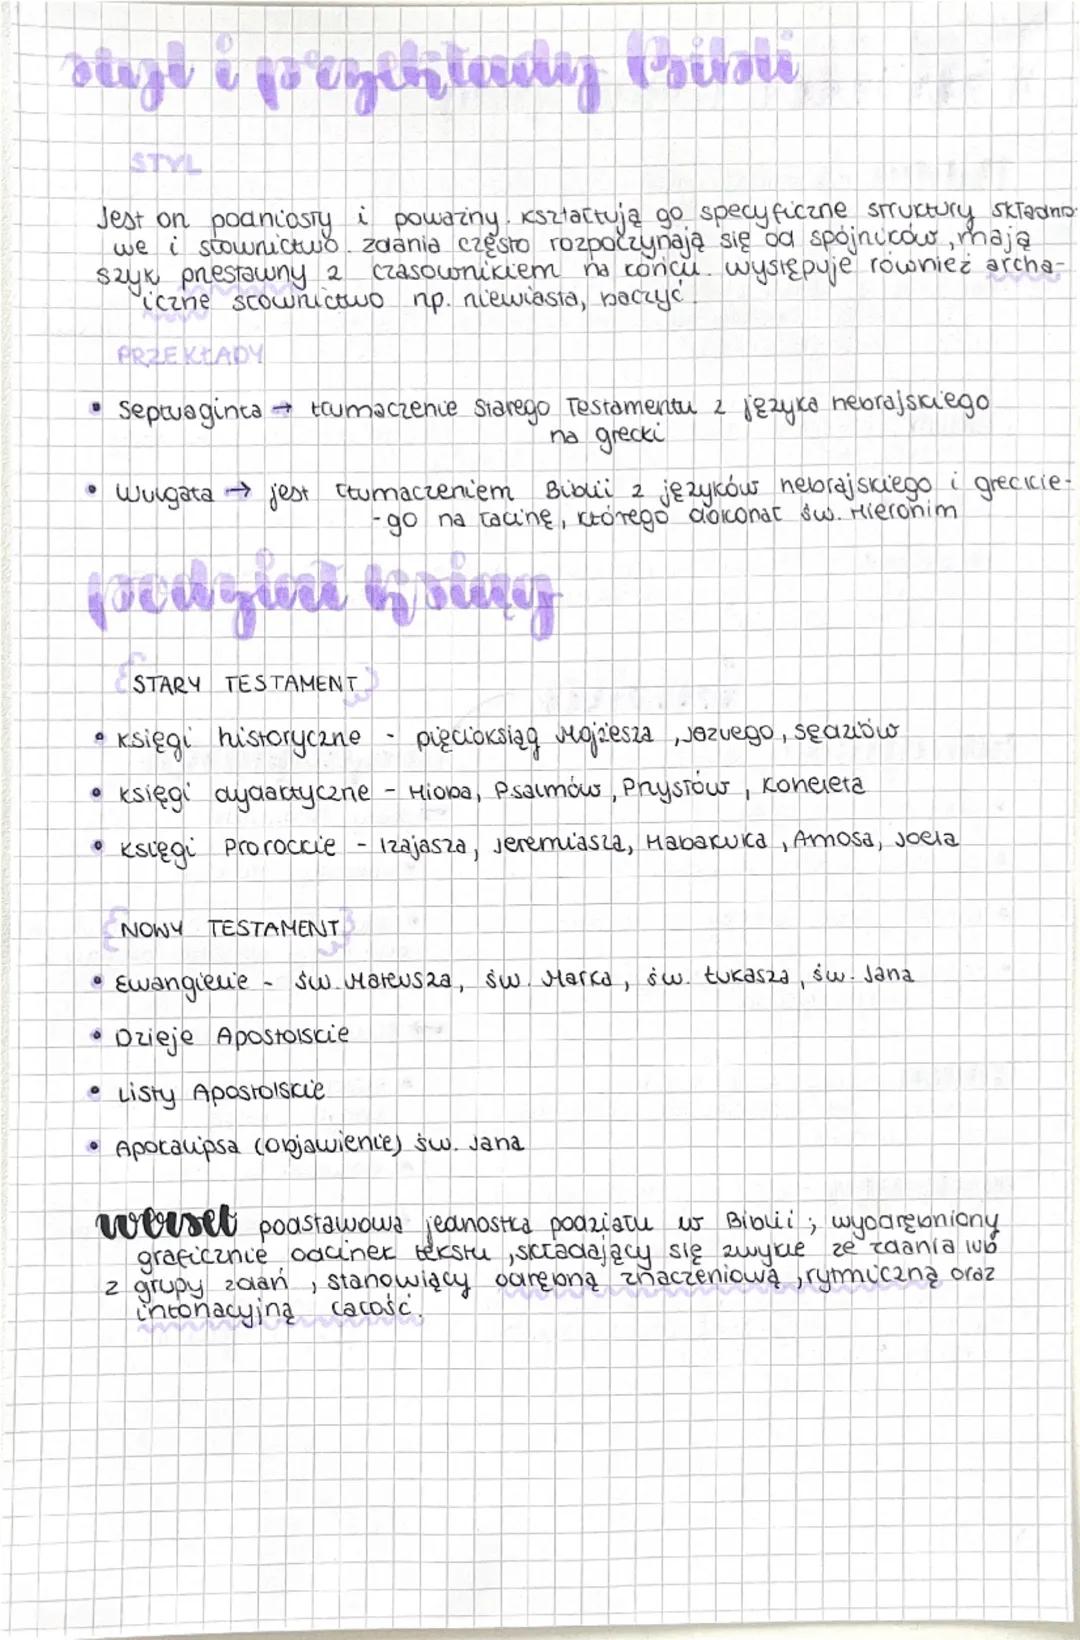 styl i przekłady Biblii
STYL
Jest on podniosły i poważny. kształtują go specyficzne struktury składnio-
we i słownictwo. zdania często rozpoczynają się od spójników, mają
szyk przestawny z czasownikiem na końcu. występuje również archa-
iczne słownictwo np. niewiasta, baczyć.
PRZEKŁADY
• Septuaginta → tłumaczenie Starego Testamentu z języka hebrajskiego
na grecki
• Wulgata → jest tłumaczeniem Biblii z języków hebrajskiego i greckie-
-go na łacinę, którego dokonał św. Hieronim
podział księg
STARY TESTAMENT
• księgi historyczne - pięcioksiąg Mojżesza, Jozuego, sędziów
• księgi dydaktyczne - Hioba, Psalmów, Przysłów, Koheleta
• księgi Prorockie - Izajasza, Jeremiasza, Habakuka, Amosa, Joela
NOWY TESTAMENT
• Ewangielie - św. Mateusza, św. Marka, św. Łukasza, św. Jana
• Dzieje Apostolskie
• Listy Apostolskie
• Apokalipsa (objawienie) św. Jana
werset podstawowa jednostka podziału w Biblii; wyodrębniony
graficznie odcinek tekstu, składający się zwykle ze zdania lub
z grupy zdań, stanowiący odrębną znaczeniową, rytmiczną oraz
intonacyjną całość.